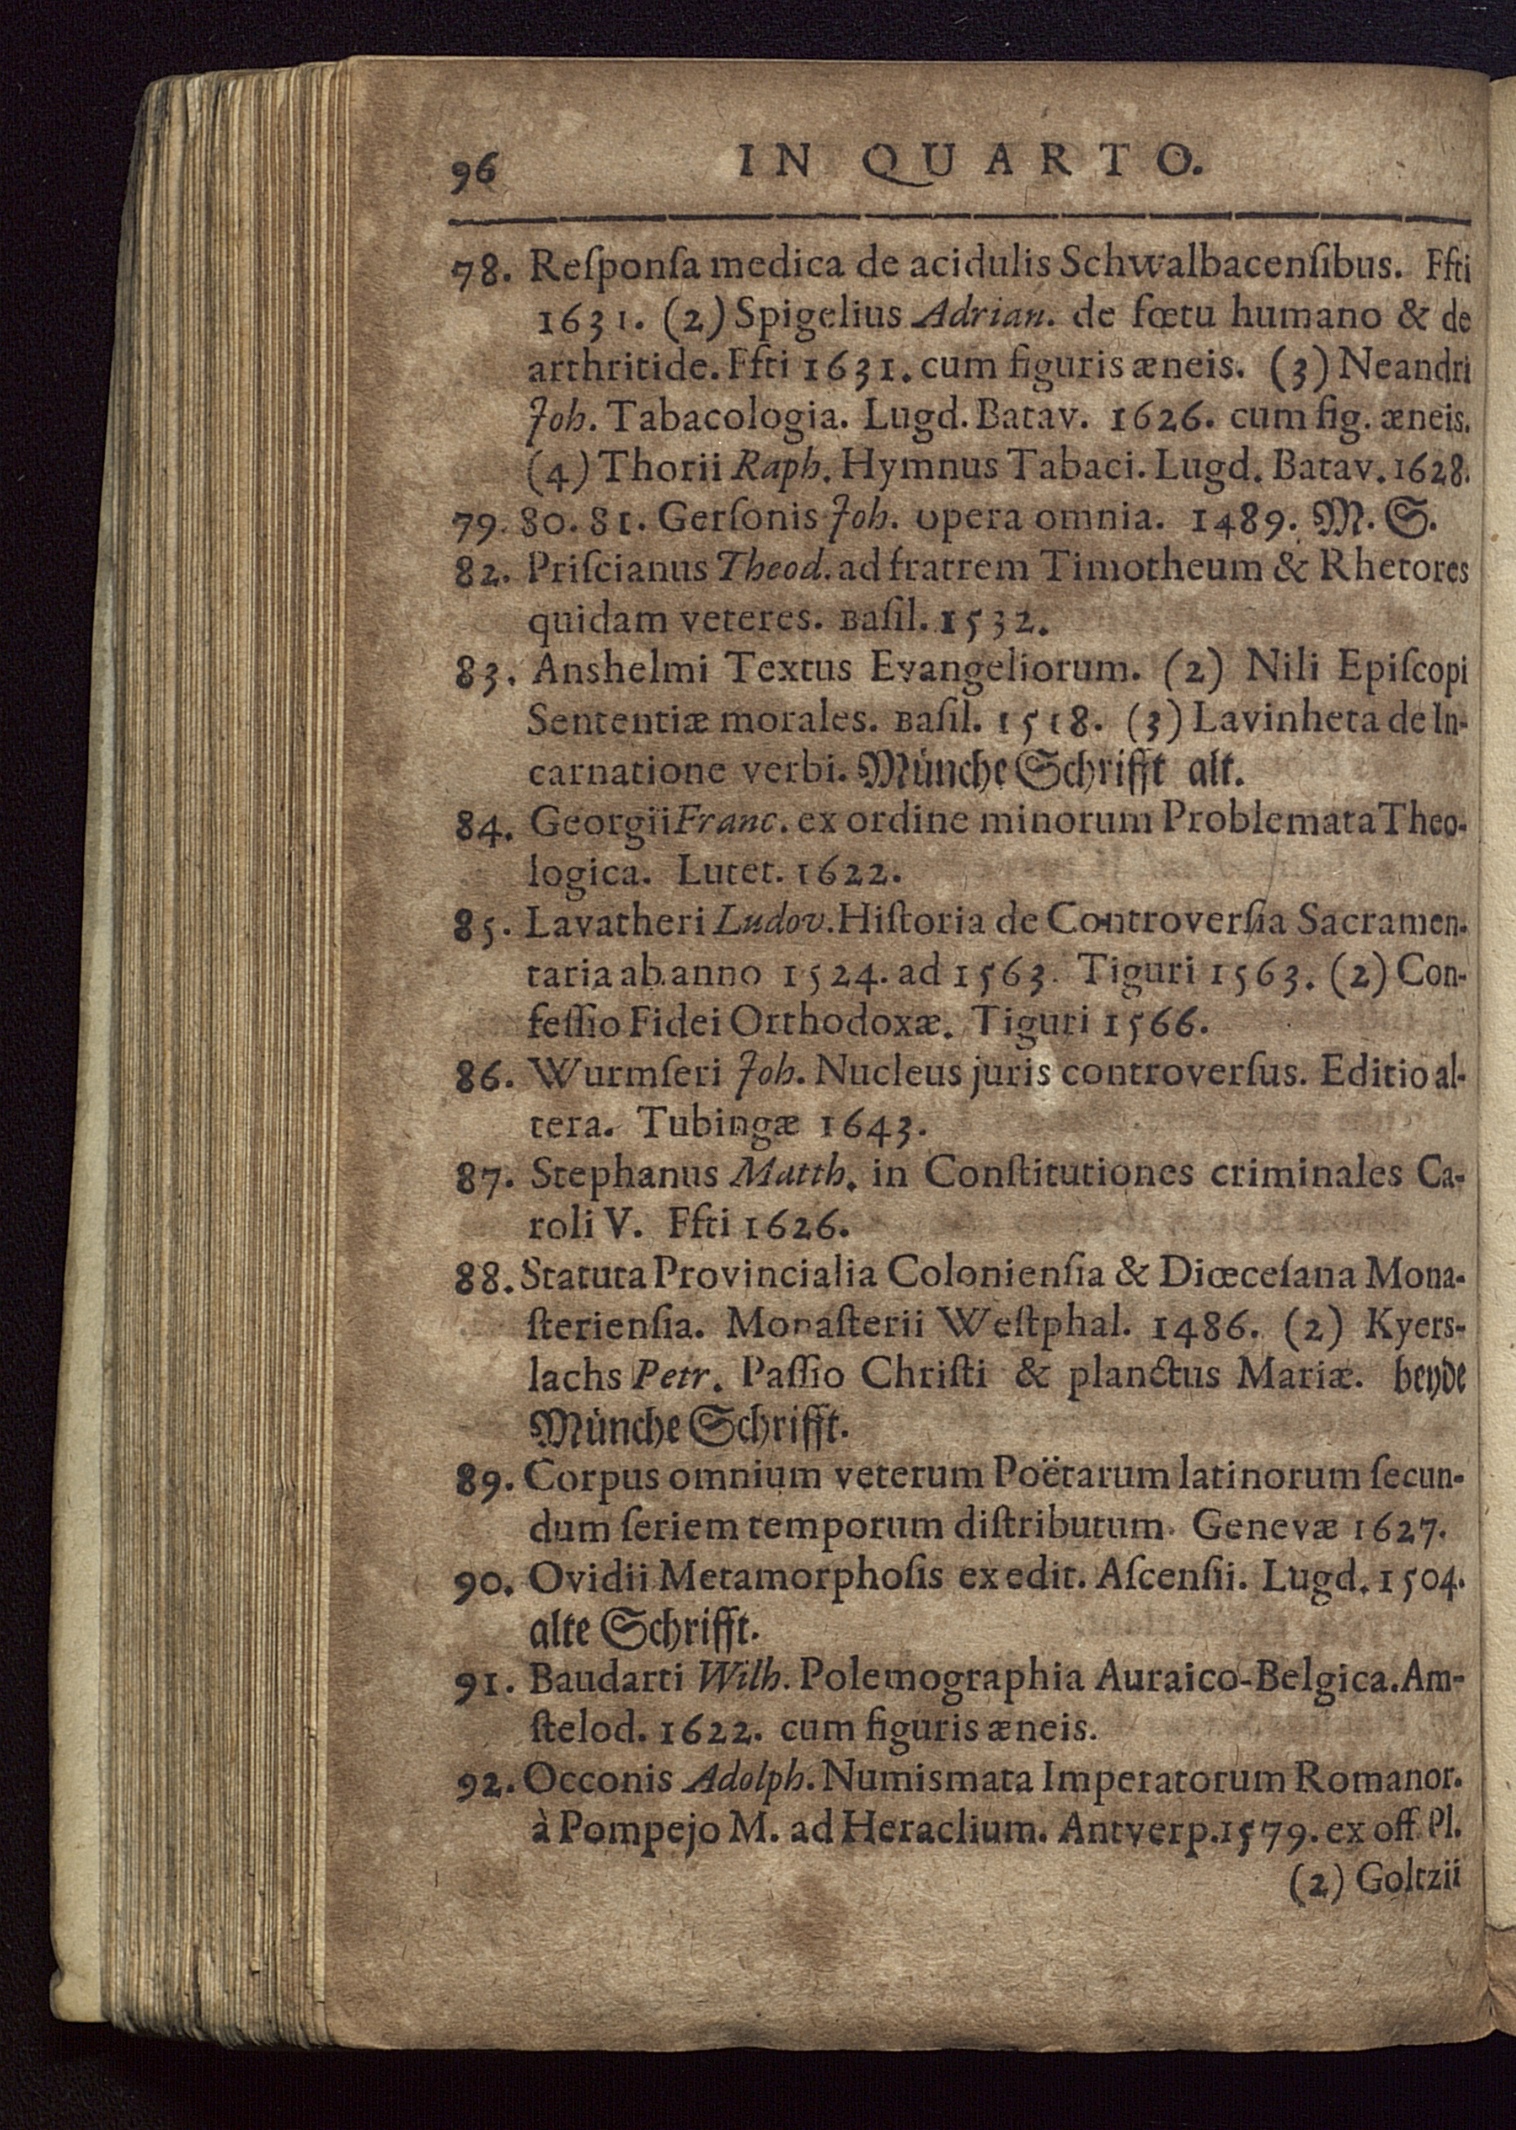 96 IN QUARTO.
78. Reſponſa medica de acidulis Schwalbacenſibus. Ffti
1631. (2) Spigelius Adrian. de fœtu humano & de
arthritide. Ffti 1631. cum figuris æneis. (3) Neandri
Joh. Tabacologia. Lugd. Batav. 1626. cum fig. æneis.
(4) Thorii Raph. Hymnus Tabaci. Lugd. Batav. 1628.
79. 80. 81. Gerſonis Joh. opera omnia. 1489. M. S.
82. Priſcianus Theod. ad fratrem Timotheum & Rhetores
quidam veteres. Baſil. 1532.
83. Anshelmi Textus Evangeliorum. (2) Nili Epiſcopi
Sententiæ morales. Baſil. 1518. (3) Lavinheta de In-
carnatione verbi. Münche Schrifft alt.
84. Georgii Franc. ex ordine minorum Problemata Theo-
logica. Lutet. 1622.
85. Lavatheri Ludov. Hiſtoria de Controverſia Sacramen-
taria ab anno 1524. ad 1563. Tiguri 1563. (2) Con-
feſſio Fidei Orthodoxæ. Tiguri 1566.
86. Wurmſeri Joh. Nucleus juris controverſus. Editio al-
tera. Tubingæ 1643.
87. Stephanus Matth. in Conſtitutiones criminales Ca-
roli V. Ffti 1626.
88. Statuta Provincialia Colonienſia & Diœceſana Mona-
ſterienſia. Monaſterii Weſtphal. 1486. (2) Kyers-
lachs Petr. Paſſio Chriſti & planctus Mariæ. beyde
Münche Schrifft.
89. Corpus omnium veterum Poëtarum latinorum ſecun-
dum ſeriem temporum diſtributum. Genevæ 1627.
90. Ovidii Metamorphoſis ex edit. Aſcenſii. Lugd. 1504.
alte Schrifft.
91. Baudarti Wilh. Polemographia Auraico-Belgica. Am-
ſtelod. 1622. cum figuris æneis.
92. Occonis Adolph. Numismata Imperatorum Romanor.
à Pompejo M. ad Heraclium. Antverp. 1579. ex off. Pl.
(2) Goltzii